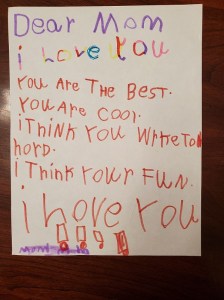 Dear Mom
i Love You
You Are The Best.
You Are Cool.
i Think You Write To
hord.
i Think Your Fun.
i Love You